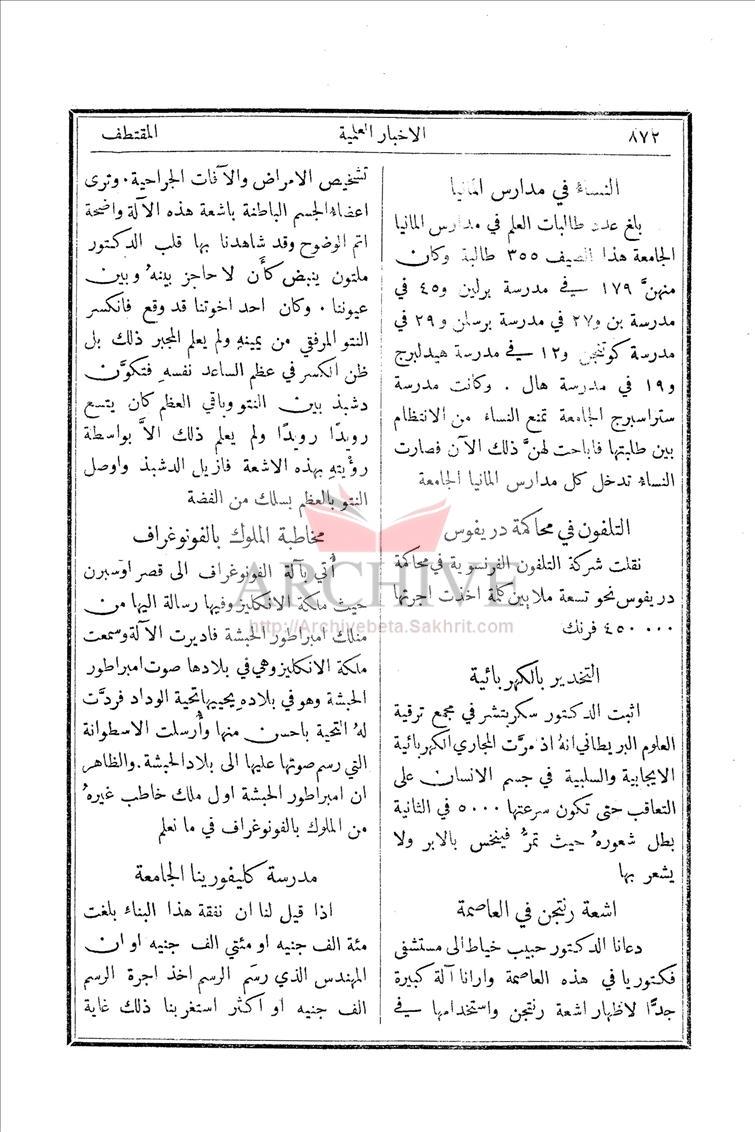 ٨٧٢
الاخبار العلمية
المقتطف
النساء في مدارس المانيا
بلغ عدد طالبات العلم في مدارس المانيا
الجامعة هذا الصيف ٣٥٥ طالبة وكان
منهنَّ ١٧٩ في مدرسة برلين و٤٥ في
مدرسة بن و٢٧ في مدرسة برسلن و٢٩ في
مدرسة كوتنجن و١٢ في مدرسة هيدلبرج
و١٩ في مدرسة هال . وكانت مدرسة
ستراسبرج الجامعة تمنع النساء من الانتظام
بين طلبتها فاباحت لهنَّ ذلك الآن فصارت
النساء تدخل كل مدارس المانيا الجامعة
التلفون في محاكمة دريفوس
نقلت شركة التلفون الفرنسوية في محاكمة
دريفوس نحو تسعة ملايين كلمة اخذت اجرتها
٤٥٠٠٠٠ فرنك
التخدير بالكهربائية
اثبت الدكتور سكربتشر في مجمع ترقية
العلوم البريطاني انهُ اذ مرَّت المجاري الكهربائية
الايجابية والسلبية في جسم الانسان على
التعاقب حتى تكون سرعتها ٥٠٠٠ في الثانية
بطل شعورهُ حيث تمرُّ فينخس بالابر ولا
يشعر بها
اشعة رنتجن في العاصمة
دعانا الدكتور حبيب خياط الى مستشفى
فكتوريا في هذه العاصمة وارانا آلة كبيرة
جدًّا لاظهار اشعة رنتجن واستخدامها في
تشخيص الامراض والآفات الجراحية . وترى
اعضاء الجسم الباطنة باشعة هذه الآلة واضحة
اتم الوضوح وقد شاهدنا بها قلب الدكتور
ملتون ينبض كأَن لا حاجز بينهُ وبين
عيوننا . وكان احد اخوتنا قد وقع فانكسر
النتو المرفقي من يمينهِ ولم يعلم المجبر ذلك بل
ظن الكسر في عظم الساعد نفسهِ فتكوَّن
دشبذ بين النتو وباقي العظم كان يتسع
رويدًا رويدًا ولم يعلم ذلك الاَّ بواسطة
رؤْيتهِ بهذه الاشعة فازيل الدشبذ واوصل
النتو بالعظم بسلك من الفضة
مخاطبة الملوك بالفونوغراف
أُتي بآلة الفونوغراف الى قصر اوسبرن
حيث ملكة الانكليز وفيها رسالة اليها من
منلك امبراطور الحبشة فاديرت الآلة وسمعت
ملكة الانكليز وهي في بلادها صوت امبراطور
الحبشة وهو في بلادهِ يحييها تحية الوداد فردَّت
لهُ التحية باحسن منها وأُرسلت الاسطوانة
التي رسم صوتها عليها الى بلاد الحبشة . والظاهر
ان امبراطور الحبشة اول ملك خاطب غيرهُ
من الملوك بالفونوغراف في ما نعلم
مدرسة كليفورينا الجامعة
اذا قيل لنا ان نفقة هذا البناء بلغت
مئة الف جنيه او مئتي الف جنيه او ان
المهندس الذي رسم الرسم اخذ اجرة الرسم
الف جنيه او اكثر استغربنا ذلك غاية
ARCHIVE
http://Archivebeta.Sakhrit.com